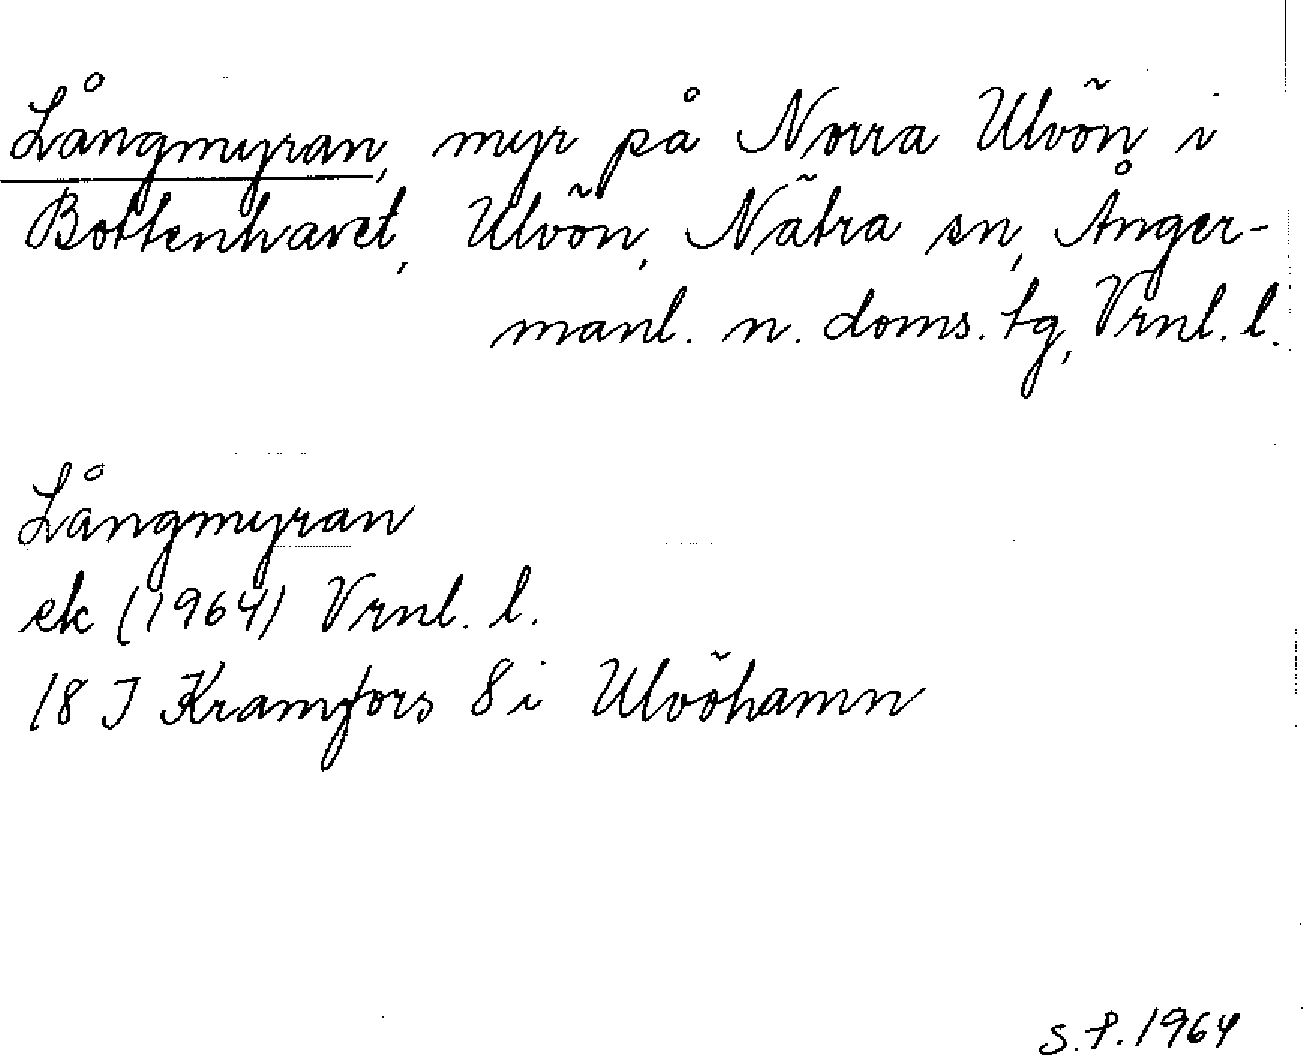 Långmyran, myr på Norra Ulvön i
Bottenhavet, Ulvön, Nätra sn, Ånger-
manl. n. doms. tg, Vrnl. l.
Långmyran
ek (1964) Vrnl. l.
18 J Kramfors 8 i Ulvöhamn
S.P. 1964